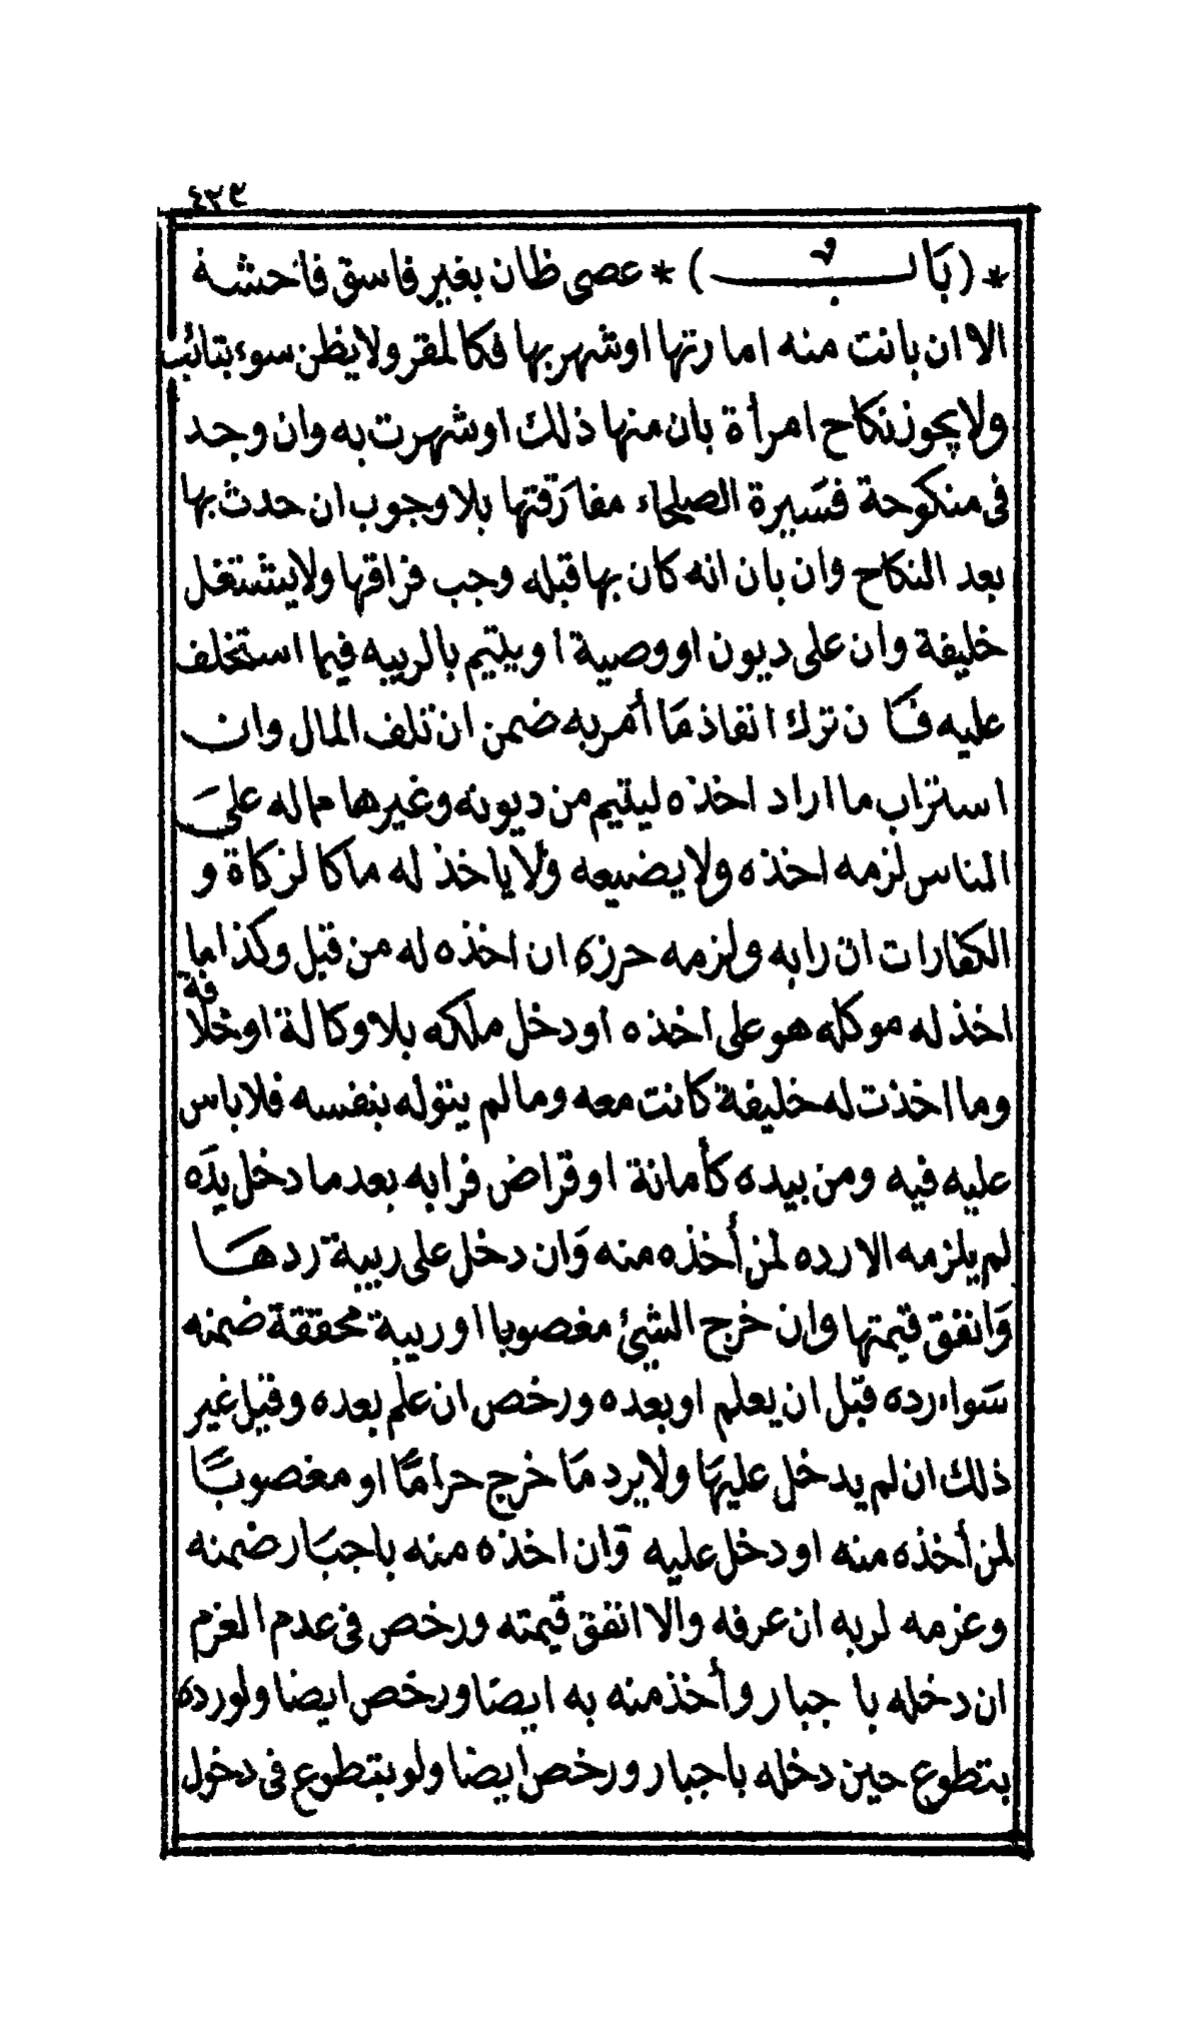 ٤٢٣
*(بَابٌ)* عصى ظان بغير فاسق فاحشة
الا ان بانت منه امارتها او شهر بها فكالمقر ولا يظن سوء بتائب
ولا يجوز نكاح امرأة بان منها ذلك او شهرت به وان وجد
فى منكوحة فسَيرة الصلحاء مفارَقتها بلا وجوب ان حدث بها
بعد النكاح وان بان انه كان بها قبله وجب فراقها ولا يشتغل
خليفة وان على ديون او وصية او يتيم بالريبه فيما استخلف
عليه فَان ترك انفاذ مَا أمر به ضمن ان تلف المال وان
استراب ما اراد اخذه ليتيم من ديونه وغيرها مما له علىَ
الناس لزمه اخذه ولا يضيعه ولا ياخذ له ما كالزكاة و
الكفارات ان رابه ولزمه حرزه ان اخذه له من قبل وكذا ما
اخذ له موكله هو على اخذه او دخل ملكه بلا وكالة او خلافة
وما اخذت له خليفة كانت معه وما لم يتوله بنفسه فلا باس
عليه فيه ومن بيده كأمانة او قراض فرابه بعد ما دخل يدَه
لم يلزمه الا رده لمن أخذه منه وَان دخل على ريبة ردهَا
وَانفق قيمتها وان خرج الشيئ مغصوبا او ريبة محققة ضمنه
سَواء رده قبل ان يعلم او بعده ورخص ان علم بعده وقيل غير
ذلك ان لم يدخل عليهَا ولا يرد مَا خرج حرامًا او مغصوبًا
لمن أخذه منه او دخل عليه وَان اخذه منه باجبَار ضمنه
وغرمه لربه ان عرفه والا انفق قيمته ورخص فى عدم الغرم
ان دخله باجبار وأخذ منه به ايضَا ورخص ايضا ولو رده
بتطوع حين دخله باجبار ورخص ايضا ولو بتطوع فى دخول